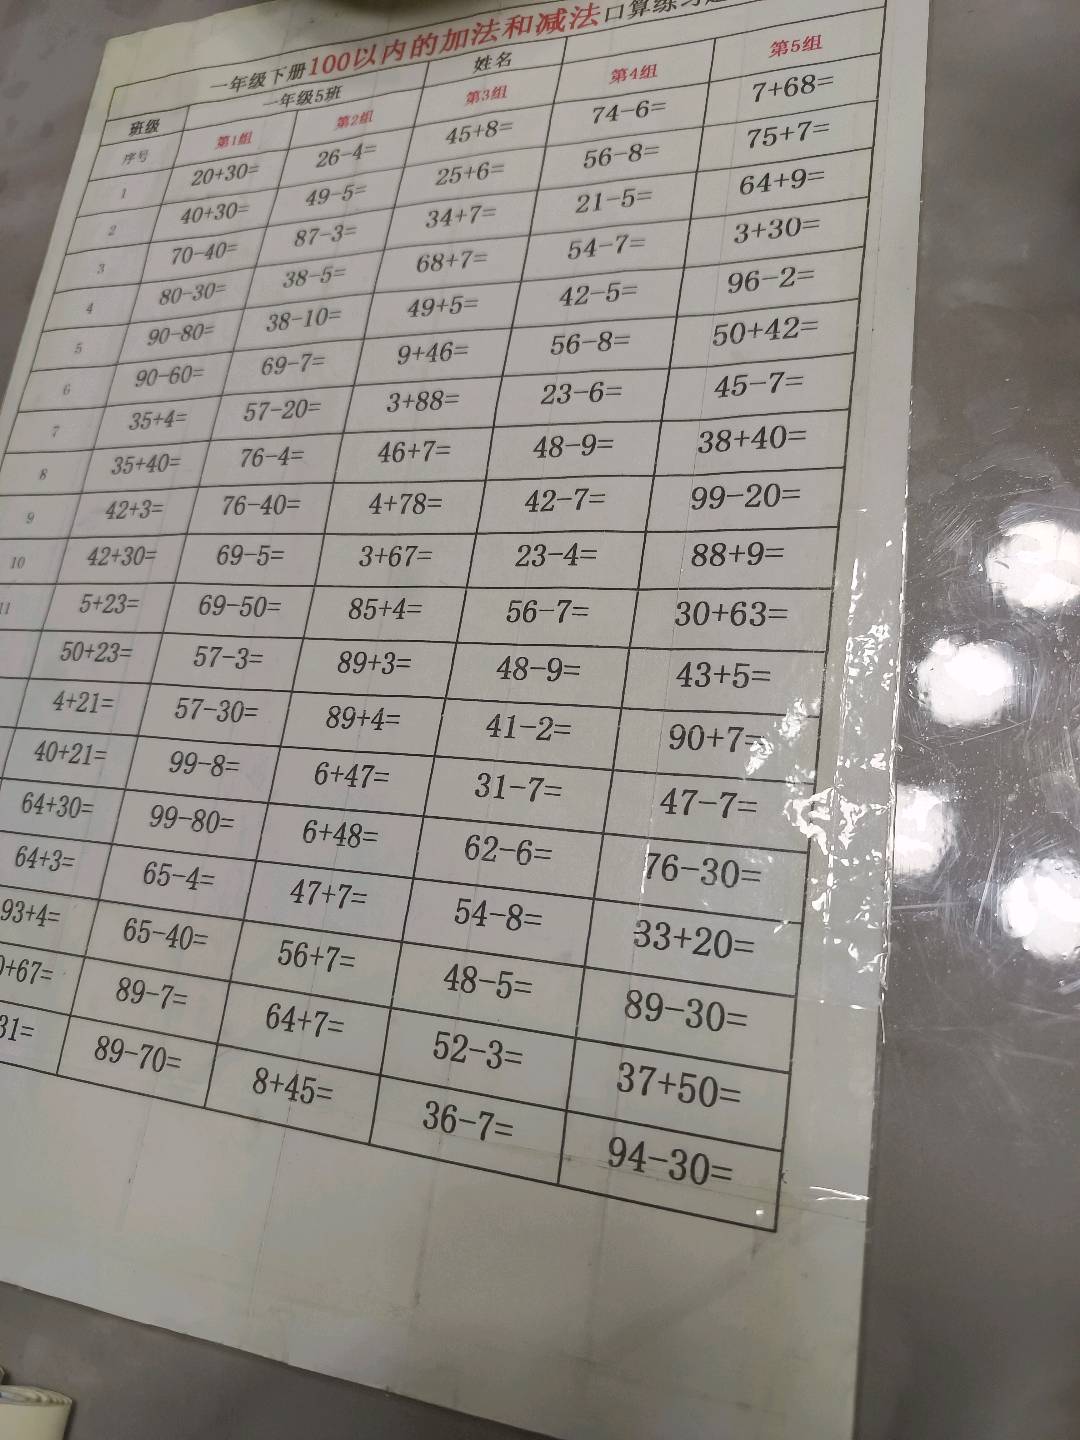 一年级下册100以内的加法和减法口算练习题
班级 一年级5班 姓名
序号 第1组 第2组 第3组 第4组 第5组
1 20+30= 26-4= 45+8= 74-6= 7+68=
2 40+30= 49-5= 25+6= 56-8= 75+7=
3 70-40= 87-3= 34+7= 21-5= 64+9=
4 80-30= 38-5= 68+7= 54-7= 3+30=
5 90-80= 38-10= 49+5= 42-5= 96-2=
6 90-60= 69-7= 9+46= 56-8= 50+42=
7 35+4= 57-20= 3+88= 23-6= 45-7=
8 35+40= 76-4= 46+7= 48-9= 38+40=
9 42+3= 76-40= 4+78= 42-7= 99-20=
10 42+30= 69-5= 3+67= 23-4= 88+9=
11 5+23= 69-50= 85+4= 56-7= 30+63=
50+23= 57-3= 89+3= 48-9= 43+5=
4+21= 57-30= 89+4= 41-2= 90+7=
40+21= 99-8= 6+47= 31-7= 47-7=
64+30= 99-80= 6+48= 62-6= 76-30=
64+3= 65-4= 47+7= 54-8= 33+20=
93+4= 65-40= 56+7= 48-5= 89-30=
+67= 89-7= 64+7= 52-3= 37+50=
31= 89-70= 8+45= 36-7= 94-30=